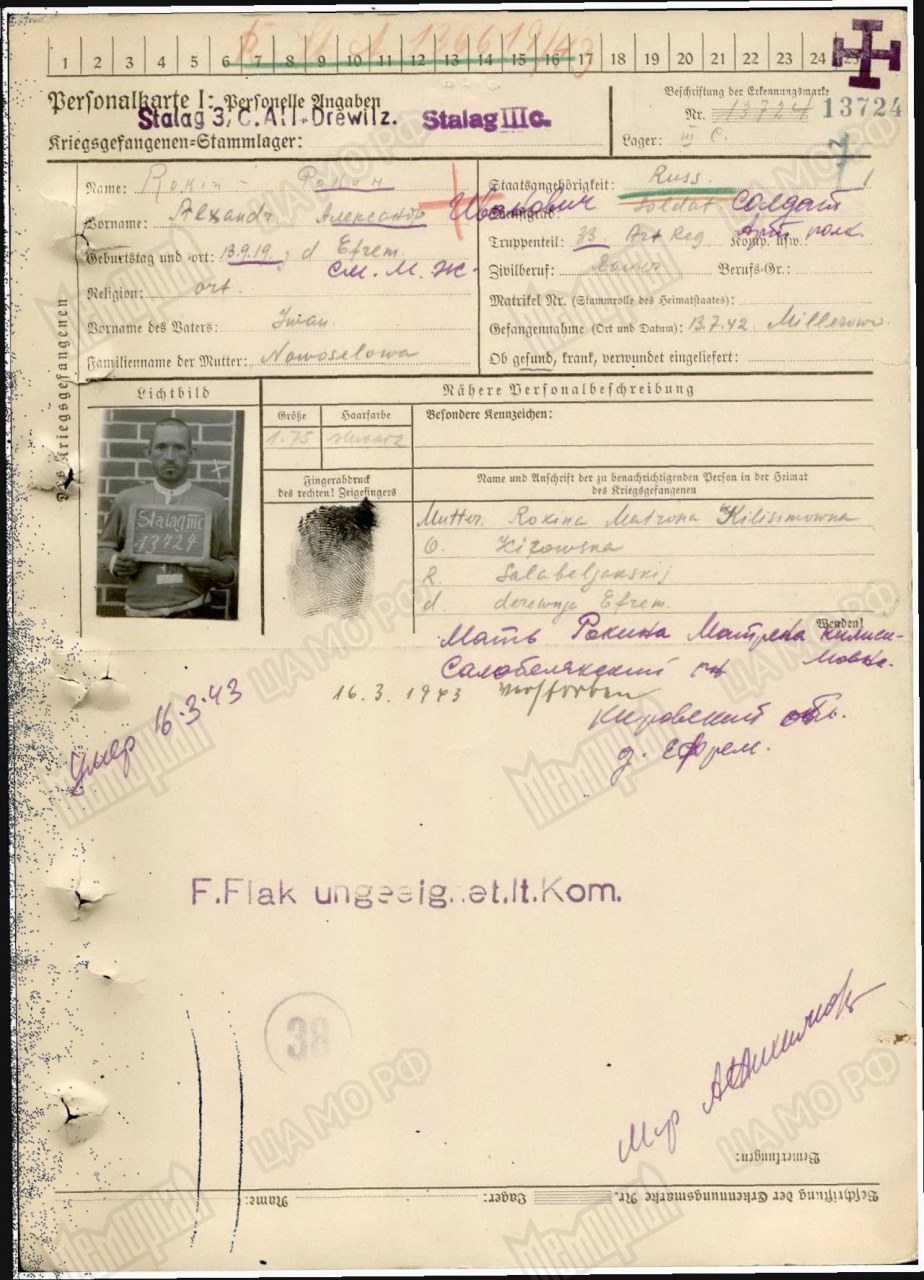 1 2 3 4 5 6 7 8 9 10 11 12 13 14 15 16 17 18 19 20 21 22 23 24 25
Personalkarte I: Personelle Angaben
Beschriftung der Erkennungsmarke
Stalag 3, C. Alt-Drewitz. Stalag III c.
Nr. 13724 13724
Kriegsgefangenen-Stammlager:
Lager: III C.
Des Kriegsgefangenen
Name: Rokin - Рокин
Staatsangehörigkeit: Russ.
Vorname: Alexandr Александр Иванович
Dienstgrad: Soldat солдат
Geburtstag und -ort: 13.9.19. d Efrem.
Truppenteil: 33. Art Reg Komp. usw.: Арт. полк.
см. м. ж.
Religion: ort.
Zivilberuf: Berufs-Gr.:
Matrikel Nr. (Stammrolle des Heimatstaates):
Vorname des Vaters: Iwan.
Gefangennahme (Ort und Datum): 13.7.42. Millerowo.
Familienname der Mutter: Nowoselowa
Ob gesund, krank, verwundet eingeliefert:
Lichtbild
Nähere Personalbeschreibung
Größe
Haarfarbe
Besondere Kennzeichen:
1.75 schwarz
Stalag IIIc
13724
Fingerabdruck
des rechten! Zeigefingers
Name und Anschrift der zu benachrichtigenden Person in der Heimat
des Kriegsgefangenen
Mutter Rokina Matrona Kilisimowna
O. Kirowska
R. Salabeljakskij
d. derewnja Efrem.
Wenden!
Мать Рокина Матрена Килиси-
мовна.
Салобелякский
16.3.1943 verstorben
Умер 16.3.43
Кировский обл.
д. Ефрем.
F.Flak ungeeignet.lt.Kom.
38
Bemerkungen:
Beschriftung der Erkennungsmarke Nr. Lager: Name:
Мемориал
ЦАМО РФ